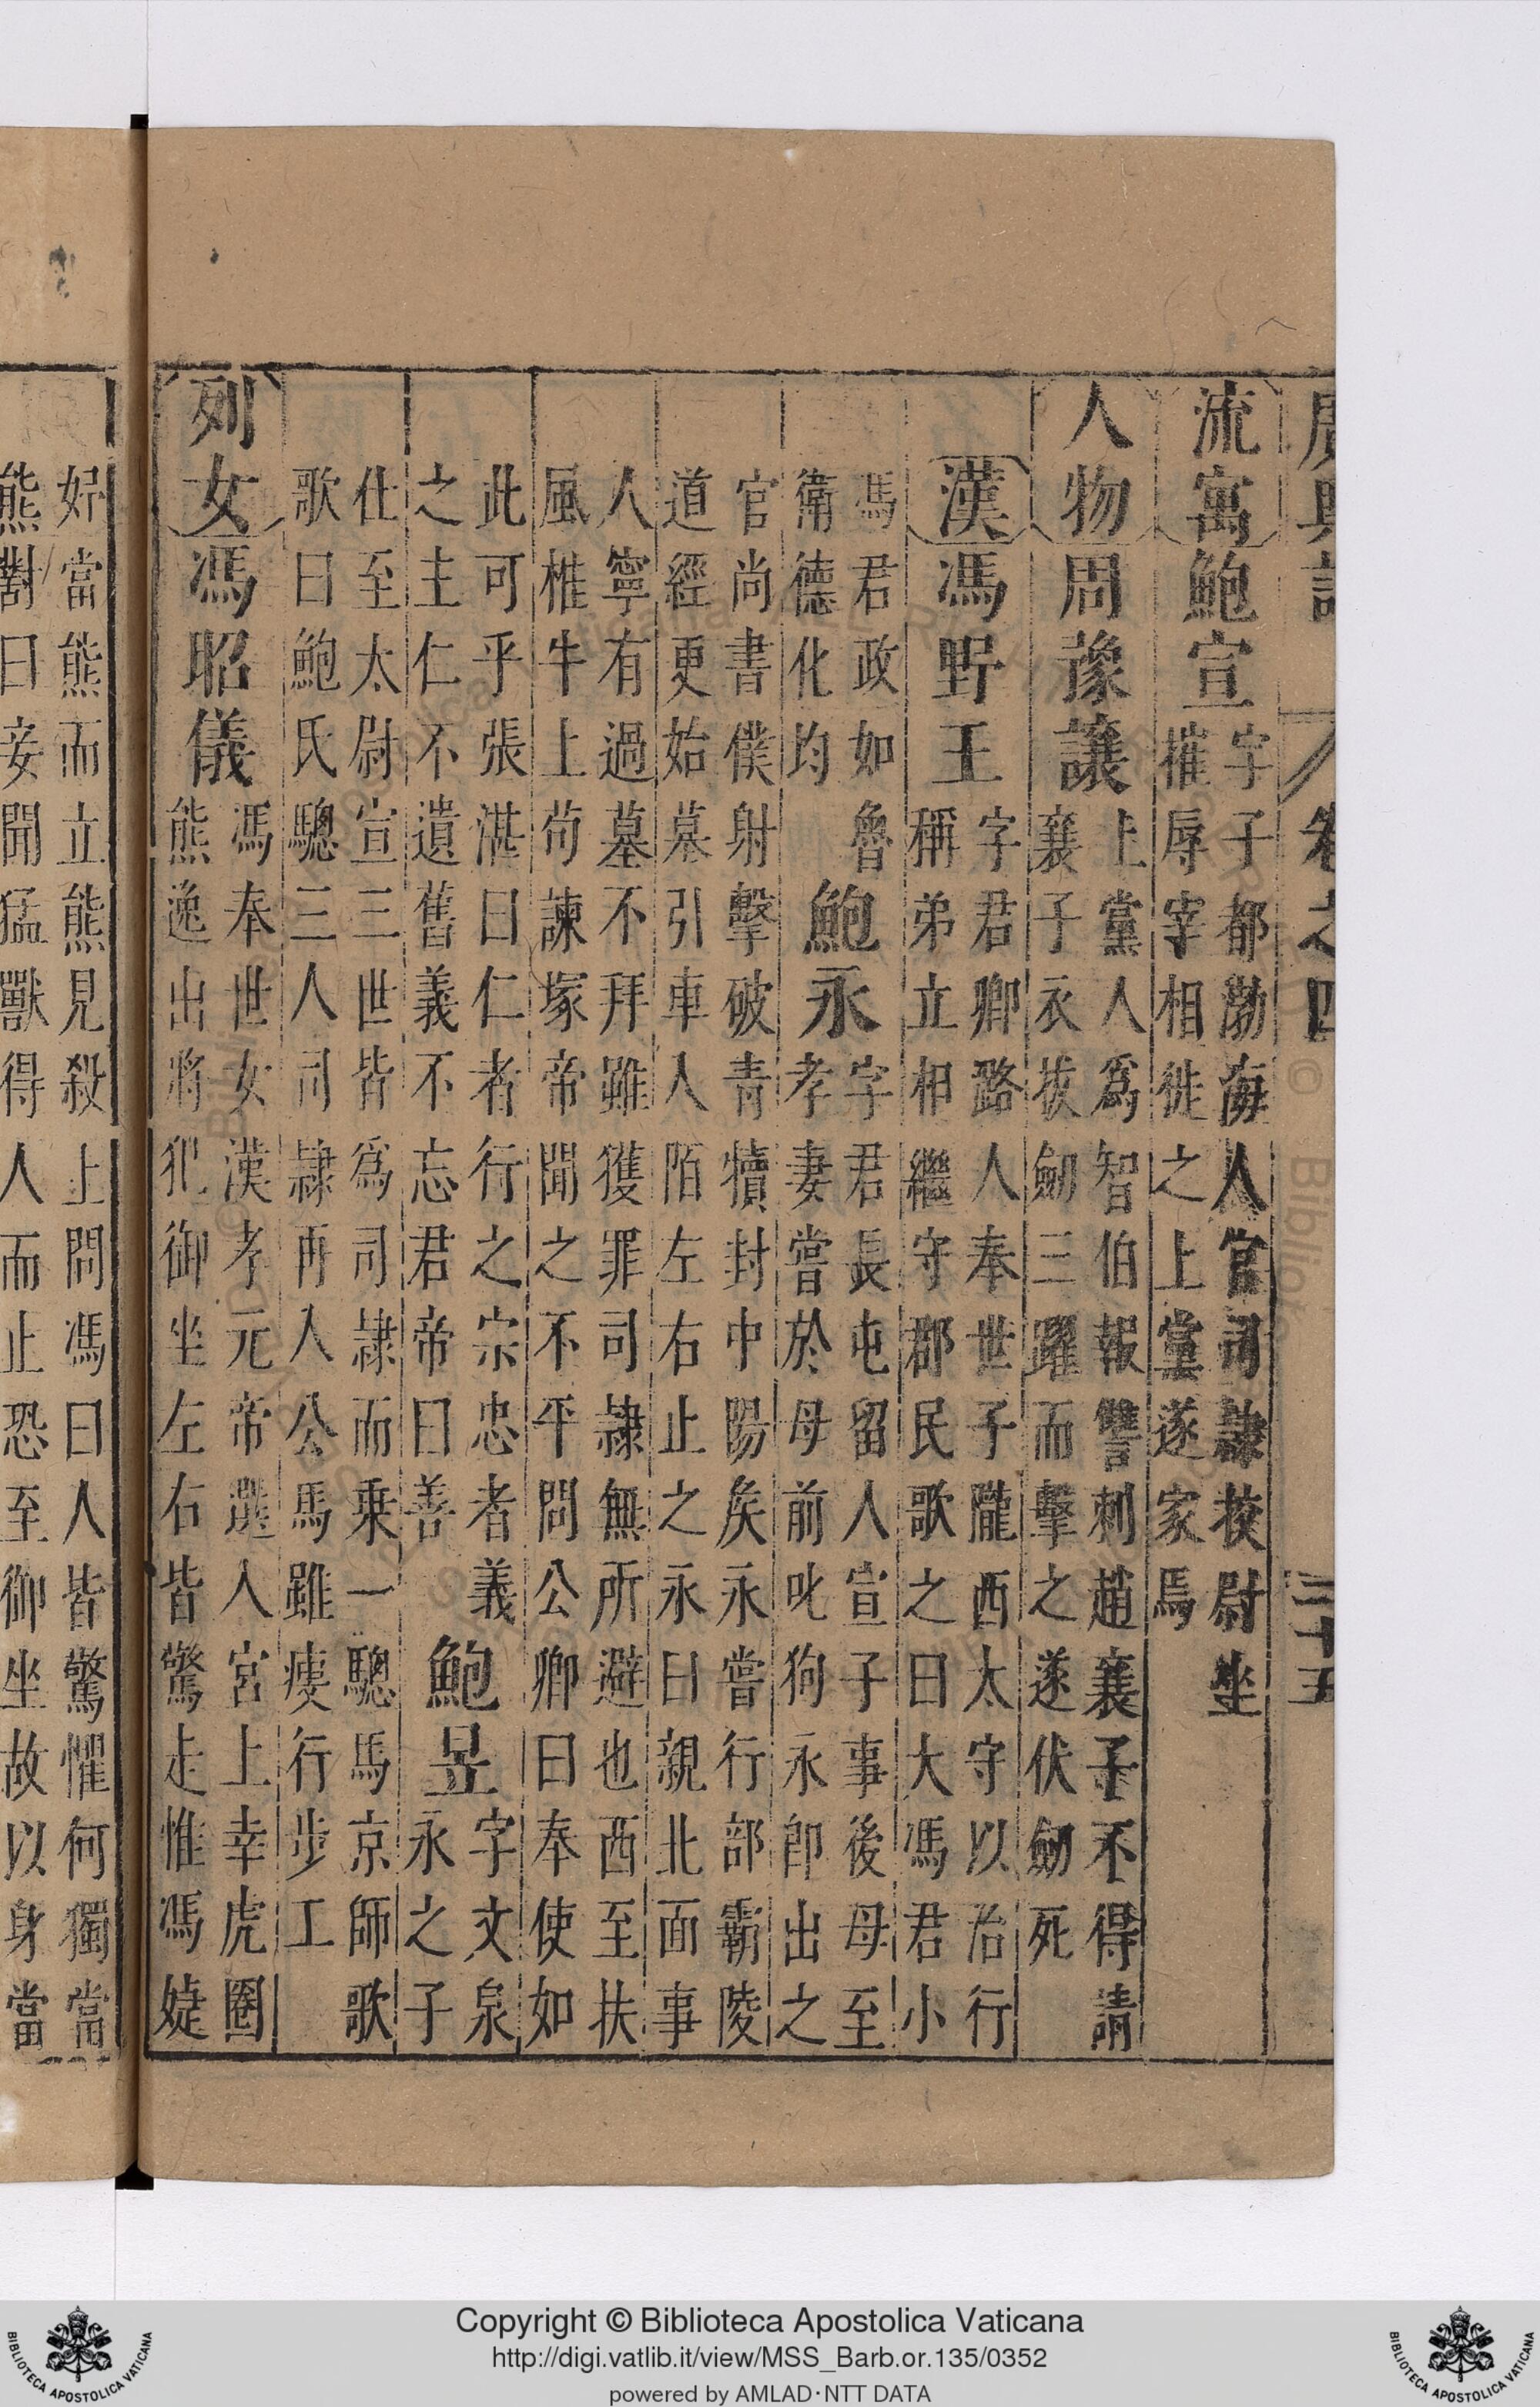 廣輿記 卷之四
流寓鮑宣
字子都渤海人官司隷挍尉坐
摧辱宰相徙之上黨遂家焉
人物周豫讓
上黨人爲智伯報讐刺趙襄子不得請
襄子衣拔劒三躍而擊之遂伏劒死
漢馮野王
字君卿潞人奉世子隴西太守以治行
稱弟立相繼守郡民歌之曰大馮君小
馮君政如魯
衛德化均
鮑永
字君長屯留人宣子事後母至
孝妻嘗於母前叱狗永即出之
官尚書僕射擊破青犢封中陽矦永嘗行部霸陵
道經更始墓引車入陌左右止之永曰親北面事
人寧有過墓不拜雖獲罪司隷無所避也西至扶
風椎牛上苟諫塚帝聞之不平問公卿曰奉使如
此可乎張湛曰仁者行之宗忠者義
之主仁不遺舊義不忘君帝曰善
鮑昱
字文泉
永之子
仕至太尉宣三世皆爲司隷而乗一驄馬京師歌
歌曰鮑氏驄三人司隷再入公馬雖瘦行步工
列女馮昭儀
馮奉世女漢孝元帝選入宮上幸虎圈
熊逸出將犯御坐左右皆驚走惟馮婕
好當熊而立熊見殺上問馮曰人皆驚懼何獨當
熊對曰妾聞猛獸得人而止恐至御坐故以身當
Copyright © Biblioteca Apostolica Vaticana
http://digi.vatlib.it/view/MSS_Barb.or.135/0352
powered by AMLAD·NTT DATA
BIBLIOTECA APOSTOLICA VATICANA
BIBLIOTECA APOSTOLICA VATICANA